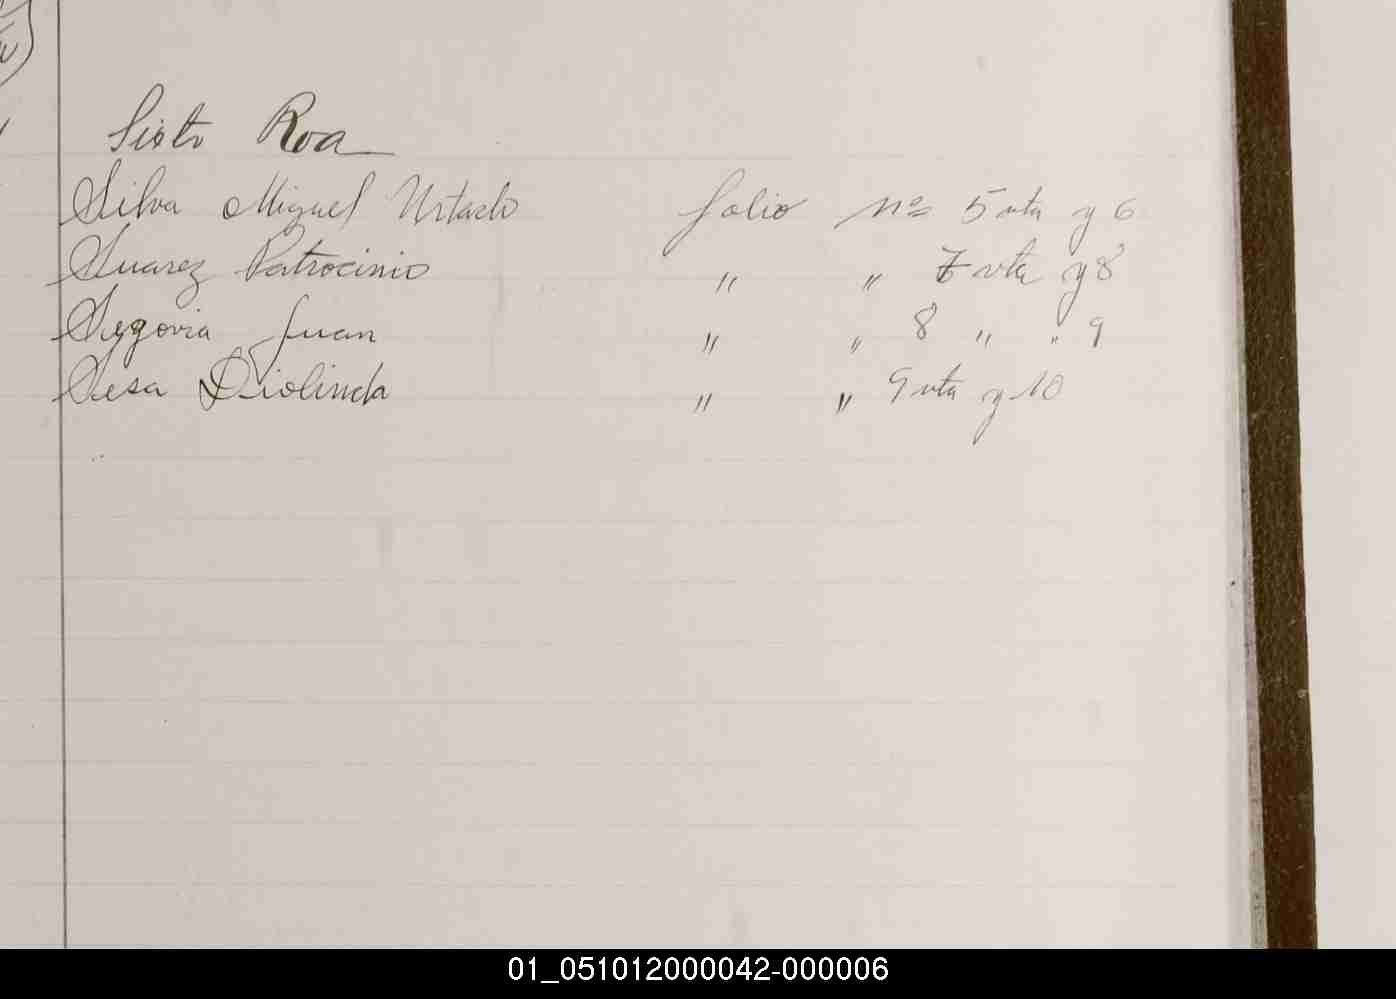 Sixto Roa
Silva Miguel Urtado folio Nº 5 vta y 6
Suarez Patrocinio " " 7 vta y 8
Segovia Juan " " 8 " " 9
Sesa Diolinda " " 9 vta y 10
01_051012000042-000006